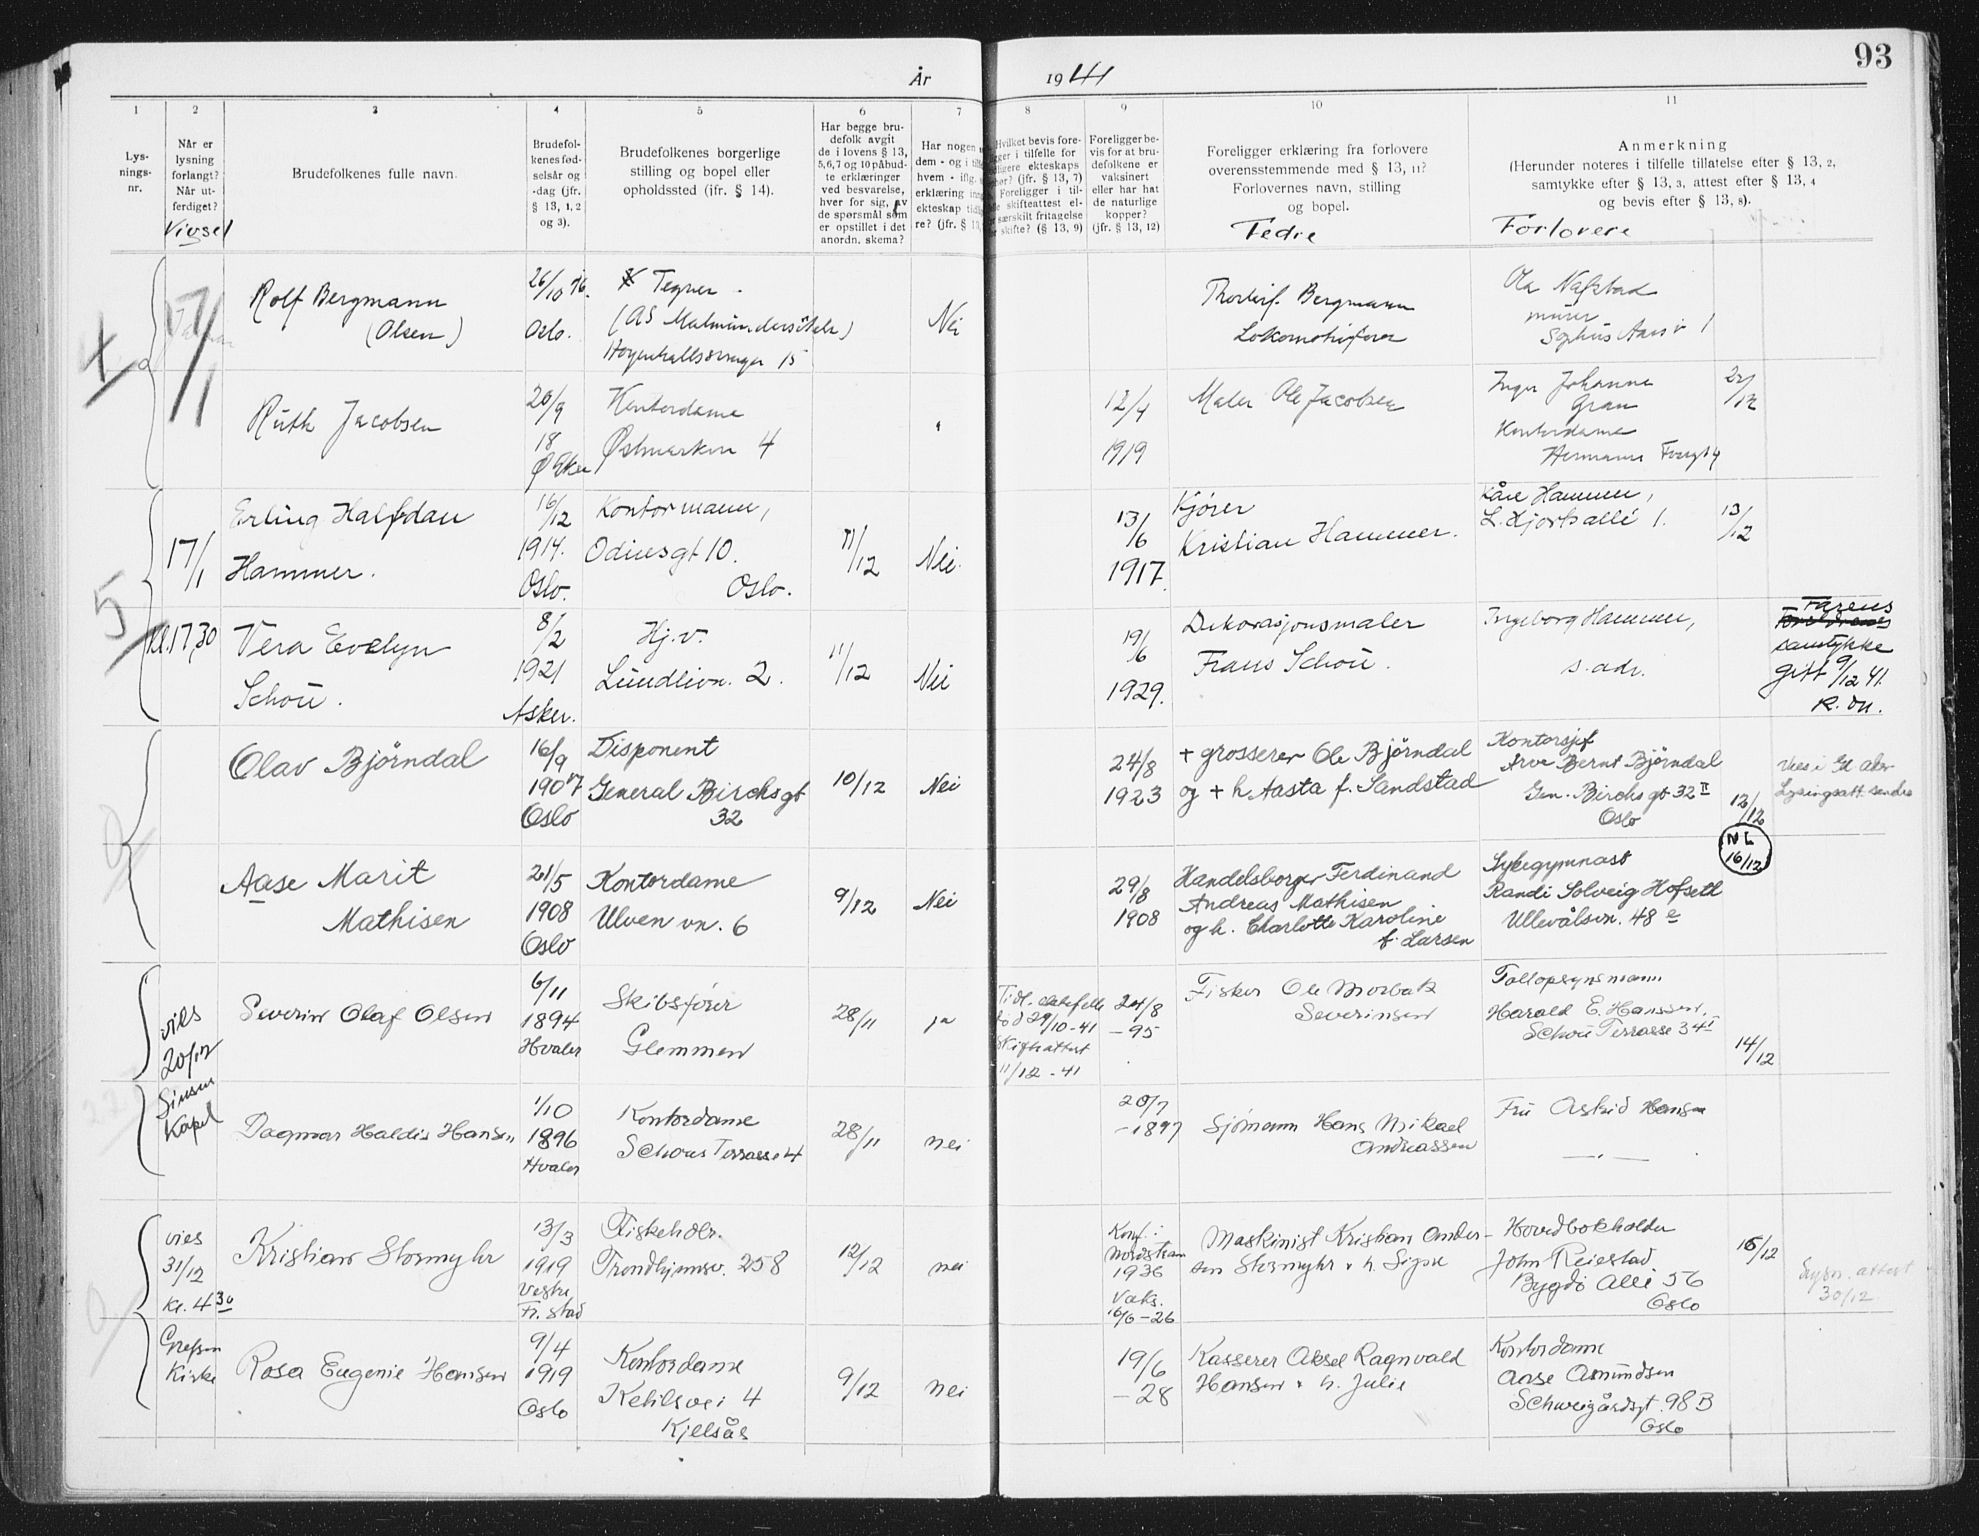 93
År 1941
1 2 3 4 5 6 7 8 9 10 11
Lys-
nings-
nr.
Når er
lysning
forlangt?
Når ut-
ferdiget?
Vigsel
Brudefolkenes fulle navn.
Brudefol-
kenes fød-
selsår og
-dag (jfr.
§ 13, 1, 2
og 3).
Brudefolkenes borgerlige
stilling og bopel eller
opholdssted (jfr. § 14).
Har begge bru-
defolk avgit
de i lovens § 13,
5,6,7 og 10 påbud-
te erklæringer
ved besvarelse,
hver for sig, av
de spørsmål som
er opstillet i det
anordn. skema?
Har nogen
dem - og i
hvem - iflg.
erklæring
ekteskap
re? (jfr. § 13,
Hvilket bevis fore-
i tilfelle for
ekteskaps
(jfr. § 13, 7)
Foreligger i til-
skifteattest el-
særskilt fritagelse
skifte? (§ 13, 9)
Foreligger be-
vis for at bru-
defolkene er
vaksinert
eller har hat
de naturlige
kopper?
(jfr. § 13, 12)
Foreligger erklæring fra forlovere
overensstemmende med § 13, 11?
Forlovernes navn, stilling
og bopel.
Fedre
Anmerkning
(Herunder noteres i tilfelle tillatelse efter § 13, 2,
samtykke efter § 13, 3, attest efter § 13, 4
og bevis efter § 13, 8).
Forlovere
4
17/1
Rolf Bergmann
(Olsen)
26/10 16.
Oslo.
Tegner.
15
Nei
Bergmann
Lokomotivfører
Ola Nafstad
murer
Sophus Aars v 1
Ruth Jacobsen
20/9
18
Ø Aker
Kontordame
Østmarkvn 4
"
12/4
1919
Maler Ole Jacobsen
Inger Johanne
Gran
Kontordame
22/12
5
17/1
Kl. 17,30
Erling Halfdan
Hammer.
16/12
1914.
Oslo.
Kontormann,
Odinsgt 10.
Oslo.
11/12
Nei.
13/6
1917.
Kjører
Kristian Hammer.
Kåre Hammer,
L. Hjorts allé 1.
13/12
Vera Evelyn
Schou.
8/2
1921
Asker.
Hj.v.
Lundlivn. 2.
11/12
Nei
19/6
1929.
Dekorasjonsmaler
Frans Schou.
Ingeborg Hammer,
s. adr.
Farens
Foreldrenes
samtykke
gitt 9/12 41.
Olav Bjørndal
16/9
1907
Oslo
Disponent
General Birchsgt
32
10/12
Nei
24/8
1923
+ grosserer Ole Bjørndal
og + h. Aasta f. Sandstad
Kontorsjef
Arve Bernt Bjørndal
Gen. Birchs gt 32 II
Oslo
12/12
Vies i Gl. Aker
Lysingsatt. sendes
NL
16/12
Aase Marit
Mathisen
21/5
1908
Oslo
Kontordame
Ulven vn. 6
9/12
Nei
29/8
1908
Handelsborger Ferdinand
Andreas Mathisen
og h. Charlotte Karoline
f. Larsen
Sykegymnast
Randi Solveig Hofseth
Ullevålsvn. 48 e
vies
20/12
Sinsen
Kapel
Severin Olaf Olsen
6/11
1894
Hvaler
Skibsfører
Glemmen
28/11
ja
Tidl. ektefelle
død 29/10-41
Skifteattest
11/12-41
24/8
-95
Fisker Ole Morbak
Severinsen
Tollopsynsmann
Harald E. Hanssen,
Schou Terrasse 34 I
14/12
Dagmar Haldis Hansen
1/10
1896
Hvaler
Kontordame
Schous Terrasse 4
28/11
nei
20/7
-1897
Sjømann Hans Mikael
Andreassen
Fru Astrid Hansen
—„—
vies
31/12
Kl. 4 30
Grefsen
Kirke
Kristian Stormyhr
13/3
1919
Vestre
Fr. stad
Fiskehdlr.
Trondhjemsv. 258
12/12
nei
Konf.:
Nordstran
1936
Vaks.
16/6-26
Maskinist Kristian Ander-
sen Stormyhr + h. Signe
Hovedbokholder
John Reiestad
Bygdø Alle 56
Oslo
15/12
Lysn. attest
30/12
Rosa Eugenie Hansen
9/4
1919
Oslo
Kontordame
Ketilsvei 4
Kjelsås
9/12
nei
19/6
-28
Kasserer Aksel Ragnvald
Hansen + h. Julie
Kontordame
Aase Asmundsen
Schweigårdsgt. 98 B
Oslo